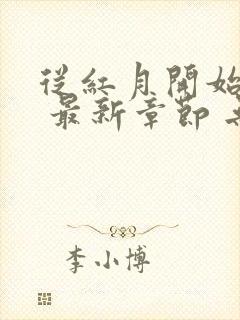 從紅月開始
最新章節
李小博